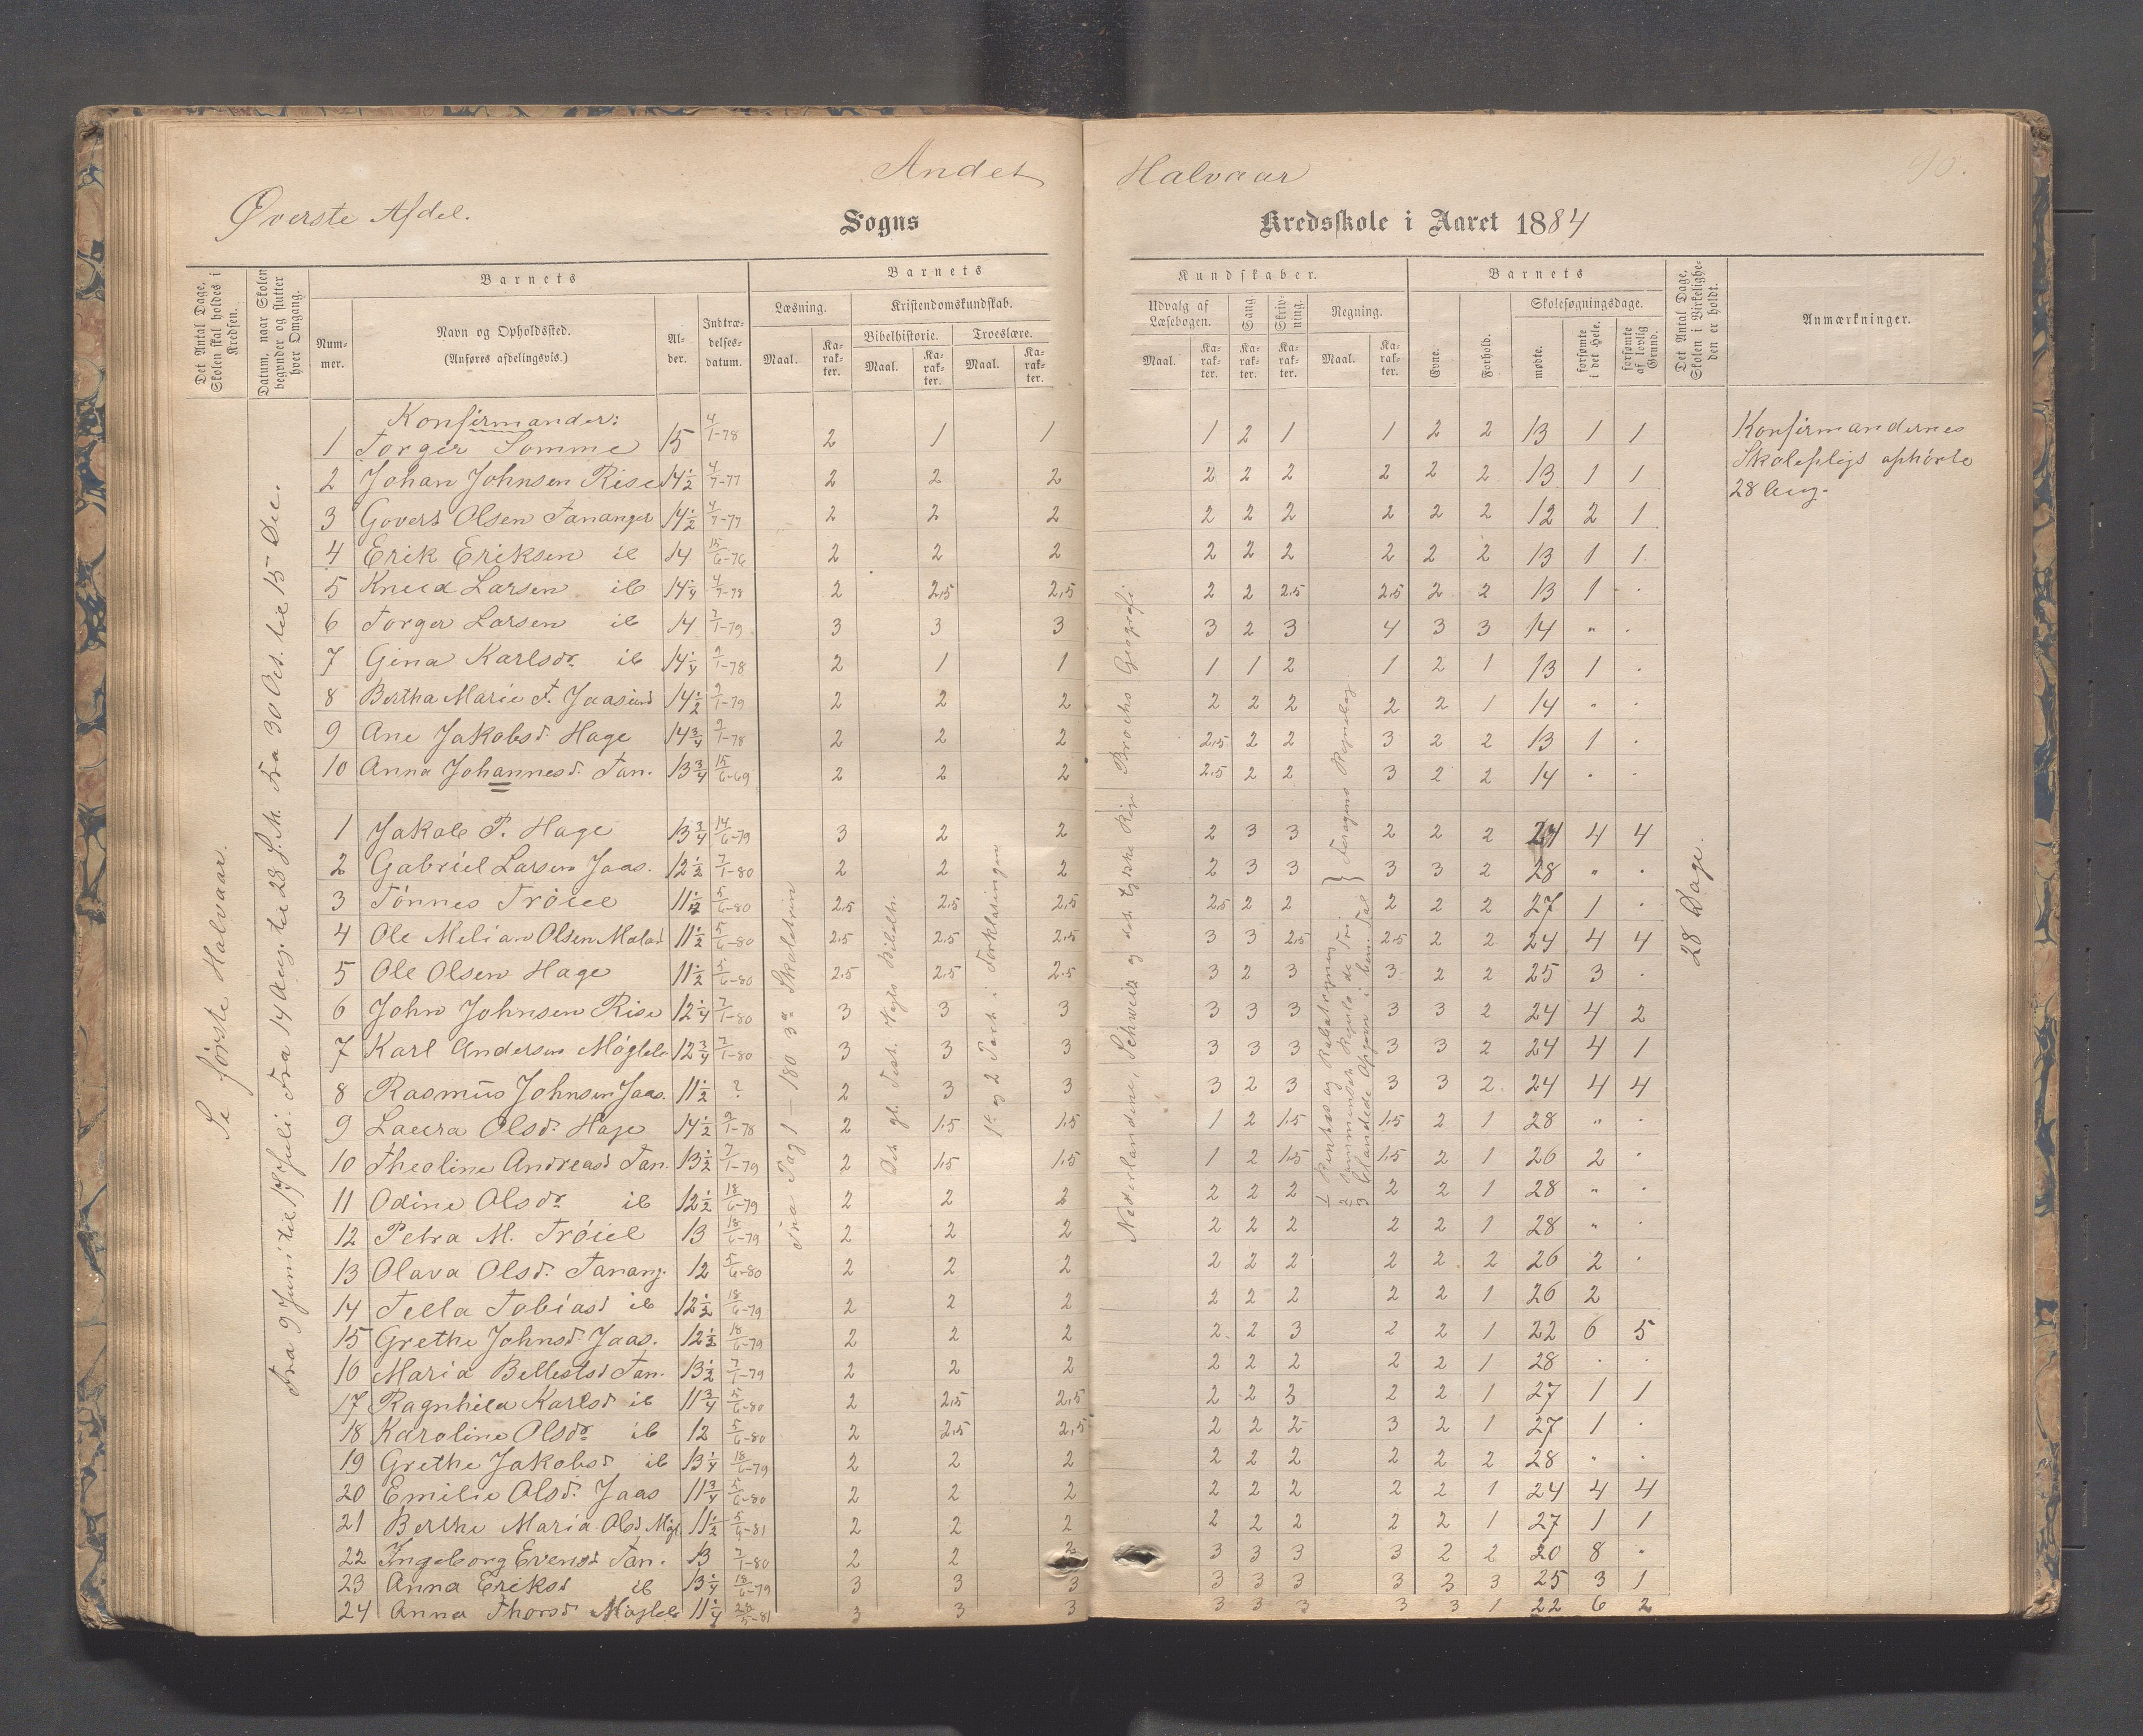 Andet Halvaar
Øverste Afdel.
Sogns Kredsskole i Aaret 1884
Det Antal Dage, Skolen skal holdes i Kredsen.
Datum, naar Skolen begynder og slutter hver Omgang.
Barnets
Nummer.
Navn og Opholdssted.
(Anføres afdelingsvis.)
Alder.
Indtrædelsesdatum.
Barnets Kundskaber.
Læsning.
Maal.
Karakter.
Kristendomskundskab.
Bibelhistorie.
Maal.
Karakter.
Troeslære.
Maal.
Karakter.
Udvalg af Læsebogen.
Maal.
Karakter.
Sang.
Karakter.
Skrivning.
Karakter.
Regning.
Maal.
Karakter.
Barnets
Evne.
Forhold.
Skolesøgningsdage.
mødte.
forsømte i det Hele.
forsømte af lovlig Grund.
Det Antal Dage, Skolen i Virkeligheden er holdt.
Anmærkninger.
Se første Halvaar.
Fra 9 Juni til 17 Juli. Fra 14 Aug. til 28 S.M. Fra 30 Oct. til 15 Dec.
Fra Pag 1 – 180 3die Skoletrin
Det gl. Test. Vogts Bibelh.
1ste og 2 Part i Forklaringen
Nederlandene, Schweiz og det tyske Rige Brochs Geografi
1 Rentes og Rabatregning
2 Sammensat Regula de Tri
3 blandede Opgaver i ben. Tal } Foragens Regnebog
28 Dage.
Konfirmandernes
Skolepligt ophørte
28 Aug.
Konfirmander:
1 Torger Somme 15 4/1-78 2 1 1 1 2 1 1 2 2 13 1 1
2 Johan Johnsen Rise 14 1/2 4/7-77 2 2 2 2 2 2 2 2 2 13 1 1
3 Govert Olsen Tananger 14 1/2 4/7-77 2 2 2 2 2 2 2 2 2 12 2 1
4 Erik Eriksen ib 14 15/6-76 2 2 2 2 2 2 2 2 2 13 1 1
5 Knud Larsen ib 14 1/4 4/7-78 2 2,5 2,5 2 2 2,5 2,5 2 2 13 1 .
6 Torger Larsen ib 14 7/1-79 3 3 3 3 2 3 4 3 3 14 " .
7 Gina Karlsdr ib 14 1/4 9/1-78 2 1 1 1 1 2 1 2 1 13 1 .
8 Bertha Marie T. Jaasund 14 1/2 7/1-79 2 2 2 2 2 2 2 2 1 14 " .
9 Ane Jakobsd. Hage 14 3/4 9/1-78 2 2 2 2,5 2 2 3 2 2 13 1 .
10 Anna Johannesd. Tan. 13 3/4 15/6-69 2 2 2 2,5 2 2 3 2 2 14 " .
1 Jakob P. Hage 13 3/4 14/6-79 3 2 2 2 3 3 2 2 2 24 4 4
2 Gabriel Larsen Jaas. 12 1/2 7/1-80 2 2 2 2 3 3 3 3 2 28 " .
3 Tønnes Trøiel 11 1/2 5/6-80 2,5 2,5 2,5 2,5 2 2 2 2 2 27 1 .
4 Ole Melian Olsen 11 1/2 5/6-80 2,5 2,5 2,5 3 3 2,5 2,5 2 2 24 4 4
5 Ole Olsen Hage 11 1/2 5/6-80 2,5 2,5 2,5 3 2 3 3 2 2 25 3 .
6 John Johnsen Rise 12 1/4 7/1-80 3 3 3 3 3 3 3 3 2 24 4 2
7 Karl Andersen Møgleb. 12 3/4 7/1-80 3 3 3 3 3 3 3 3 2 24 4 1
8 Rasmus Johnsen Jaas. 11 1/2 ? 2 3 3 3 2 3 3 3 2 24 4 4
9 Laura Olsd. Hage 14 1/2 9/1-78 2 1,5 1,5 1 2 1,5 1,5 2 1 28 " .
10 Theoline Andreasd Tan. 13 1/2 7/1-79 2 1,5 1,5 1 2 1,5 1,5 2 1 26 2 .
11 Odine Olsdr ib 12 1/2 18/6-79 2 2 2 2 2 2 2 2 1 28 " .
12 Petra M. Trøiel 13 18/6-79 2 2 2 2 2 2 2 2 1 28 " .
13 Olava Olsd. Tanang. 12 5/6-80 2 2 2 2 2 2 2 2 2 26 2 .
14 Tella Tobiasd ib 12 1/2 18/6-79 2 2 2 2 2 2 2 2 1 26 2
15 Grethe Johnsd. Jaas. 12 1/2 18/6-79 2 2 2 2 2 3 2 2 1 22 6 5
16 Maria Bellestsd Tan. 13 1/2 7/1-79 2 2 2 2 2 2 2 2 1 28 . .
17 Ragnhild Karlsd ib 11 3/4 5/6-80 2 2,5 2,5 2 2 3 2 2 1 27 1 1
18 Karoline Olsdr ib 12 5/6-80 2 2,5 2,5 2 2 2 3 2 1 27 1 .
19 Grethe Jakobsd ib 13 1/4 18/6-79 2 2 2 2 2 2 2 2 2 28 " .
20 Emilie Olsd. Jaas 11 3/4 5/6-80 2 2 2 2 2 2 2 2 1 24 4 4
21 Berthe Maria Olsd Møgl 11 1/2 5/6-81 2 2 2 2 2 2 2 2 1 27 1 1
22 Ingeborg Evensd Tan. 13 7/1-80 2 2 2 3 3 3 3 2 2 20 8 "
23 Anna Eriksd ib 13 1/4 18/6-79 3 3 3 3 3 3 3 3 3 25 3 1
24 Anna Thorsd Møgleb 11 1/4 3 3 3 3 3 3 3 3 1 22 6 2